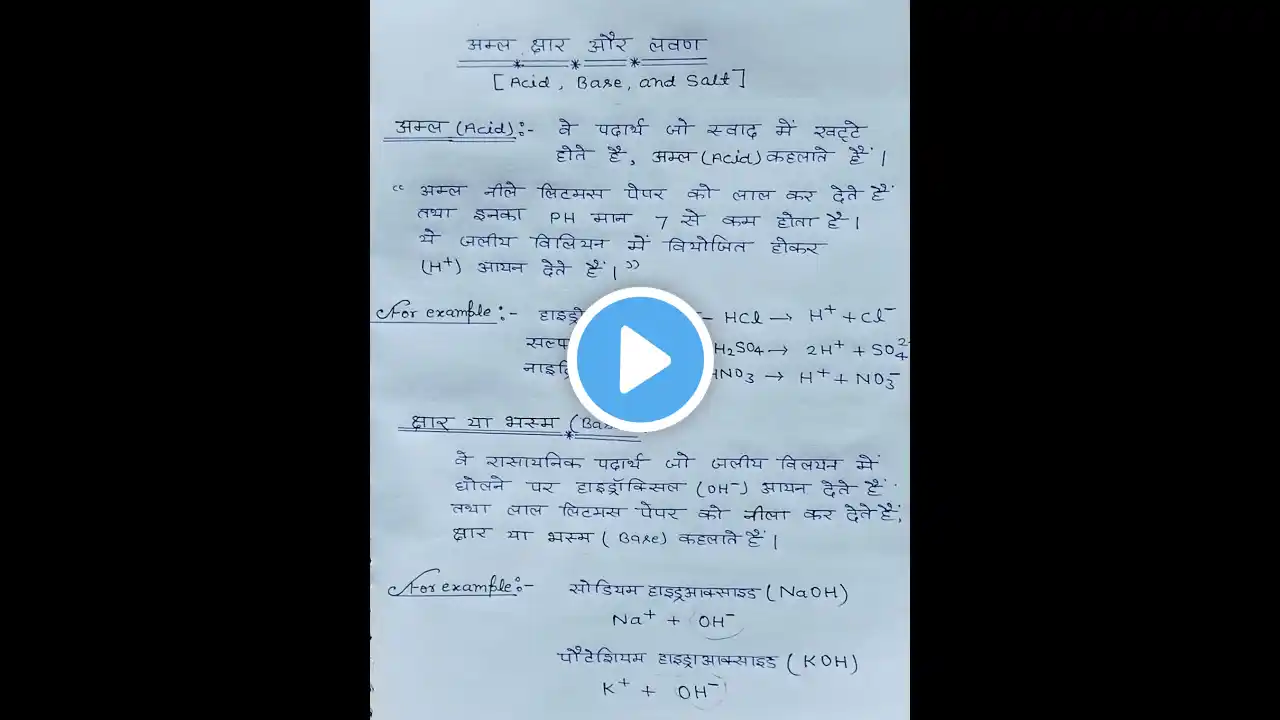 अम्ल क्षार और लवण
[Acid, Base, and Salt]
अम्ल (Acid):- वे पदार्थ जो स्वाद में खट्टे
होते हैं, अम्ल (Acid) कहलाते हैं।
“ अम्ल नीले लिटमस पेपर को लाल कर देते हैं
तथा इनका PH मान 7 से कम होता है।
ये जलीय विलियन में वियोजित होकर
(H⁺) आयन देते हैं। ”
For example:- - HCl → H⁺ + Cl⁻
H₂SO₄ → 2H⁺ + SO₄²⁻
HNO₃ → H⁺ + NO₃⁻
क्षार या भस्म (Base
वे रासायनिक पदार्थ जो जलीय विलयन में
घोलने पर हाइड्रॉक्सिल (OH⁻) आयन देते हैं
तथा लाल लिटमस पेपर को नीला कर देते हैं,
क्षार या भस्म (Base) कहलाते हैं।
For example:- सोडियम हाइड्रआक्साइड (NaOH)
Na⁺ + OH⁻
पौटेशियम हाइड्राआक्साइड (KOH)
K⁺ + OH⁻